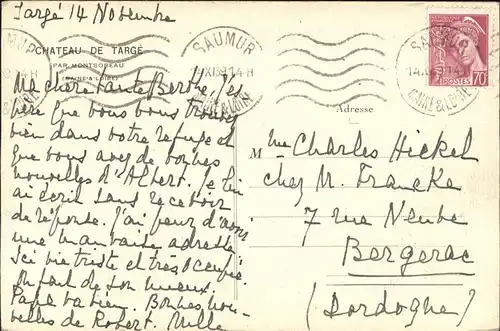 Targé 14 Novembre
CHATEAU DE TARGÉ
PAR MONTSOREAU
(MAINE-&-LOIRE)
SAUMUR
14 XI 39 14 H
MAINE & LOIRE
Ma chère tante Berthe, j'es
père que vous vous trouvez
bien dans votre refuge et
que vous avez de bonnes
nouvelles d'Albert. Je lui
ai écrit sans recevoir
de réponse. J'ai peur d'avoir
une mauvaise adresse
Ici vie triste et très occupée.
On fait de son mieux.
Papa va bien. Bonnes nou
velles de Robert. Mille
SAUMUR
MAINE & LOIRE
70
Adresse
Mme Charles Hickel
chez M. Francke
7 rue Neube
Bergerac
(Dordogne)